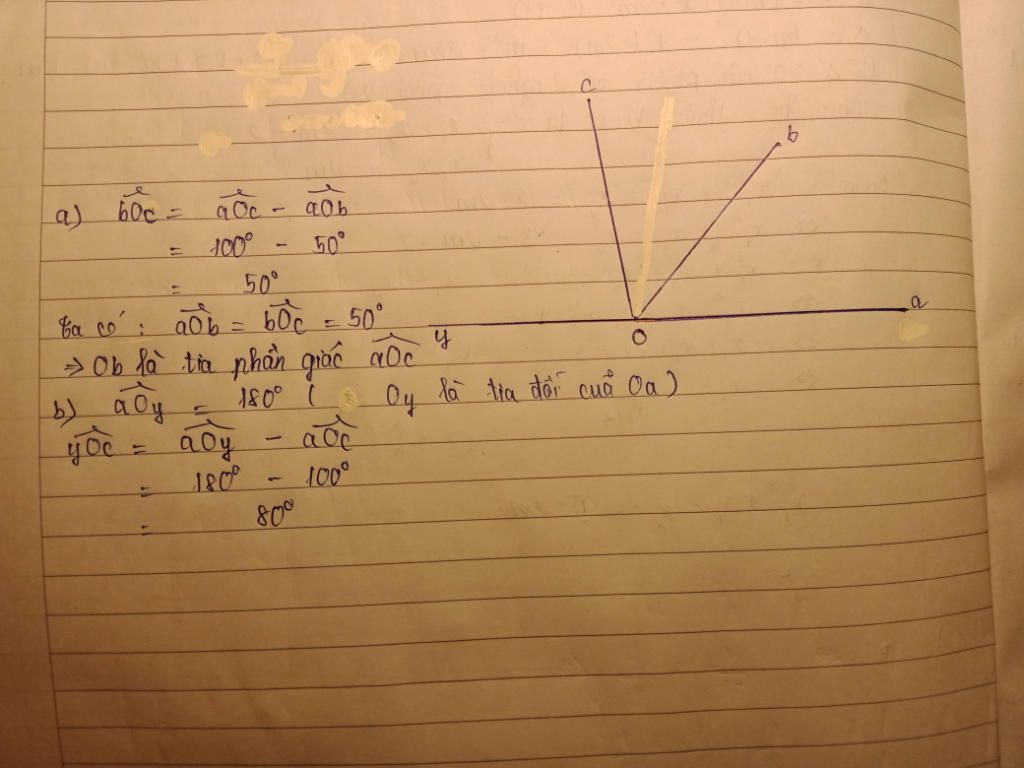 c
b
a) bOc = aOc - aOb
= 100° - 50°
= 50°
Ta có: aOb = bOc = 50°
y
O
a
⇒ Ob là tia phân giác aOc
b) aOy = 180° ( Oy là tia đối cuả Oa)
yOc = aOy - aOc
= 180° - 100°
= 80°